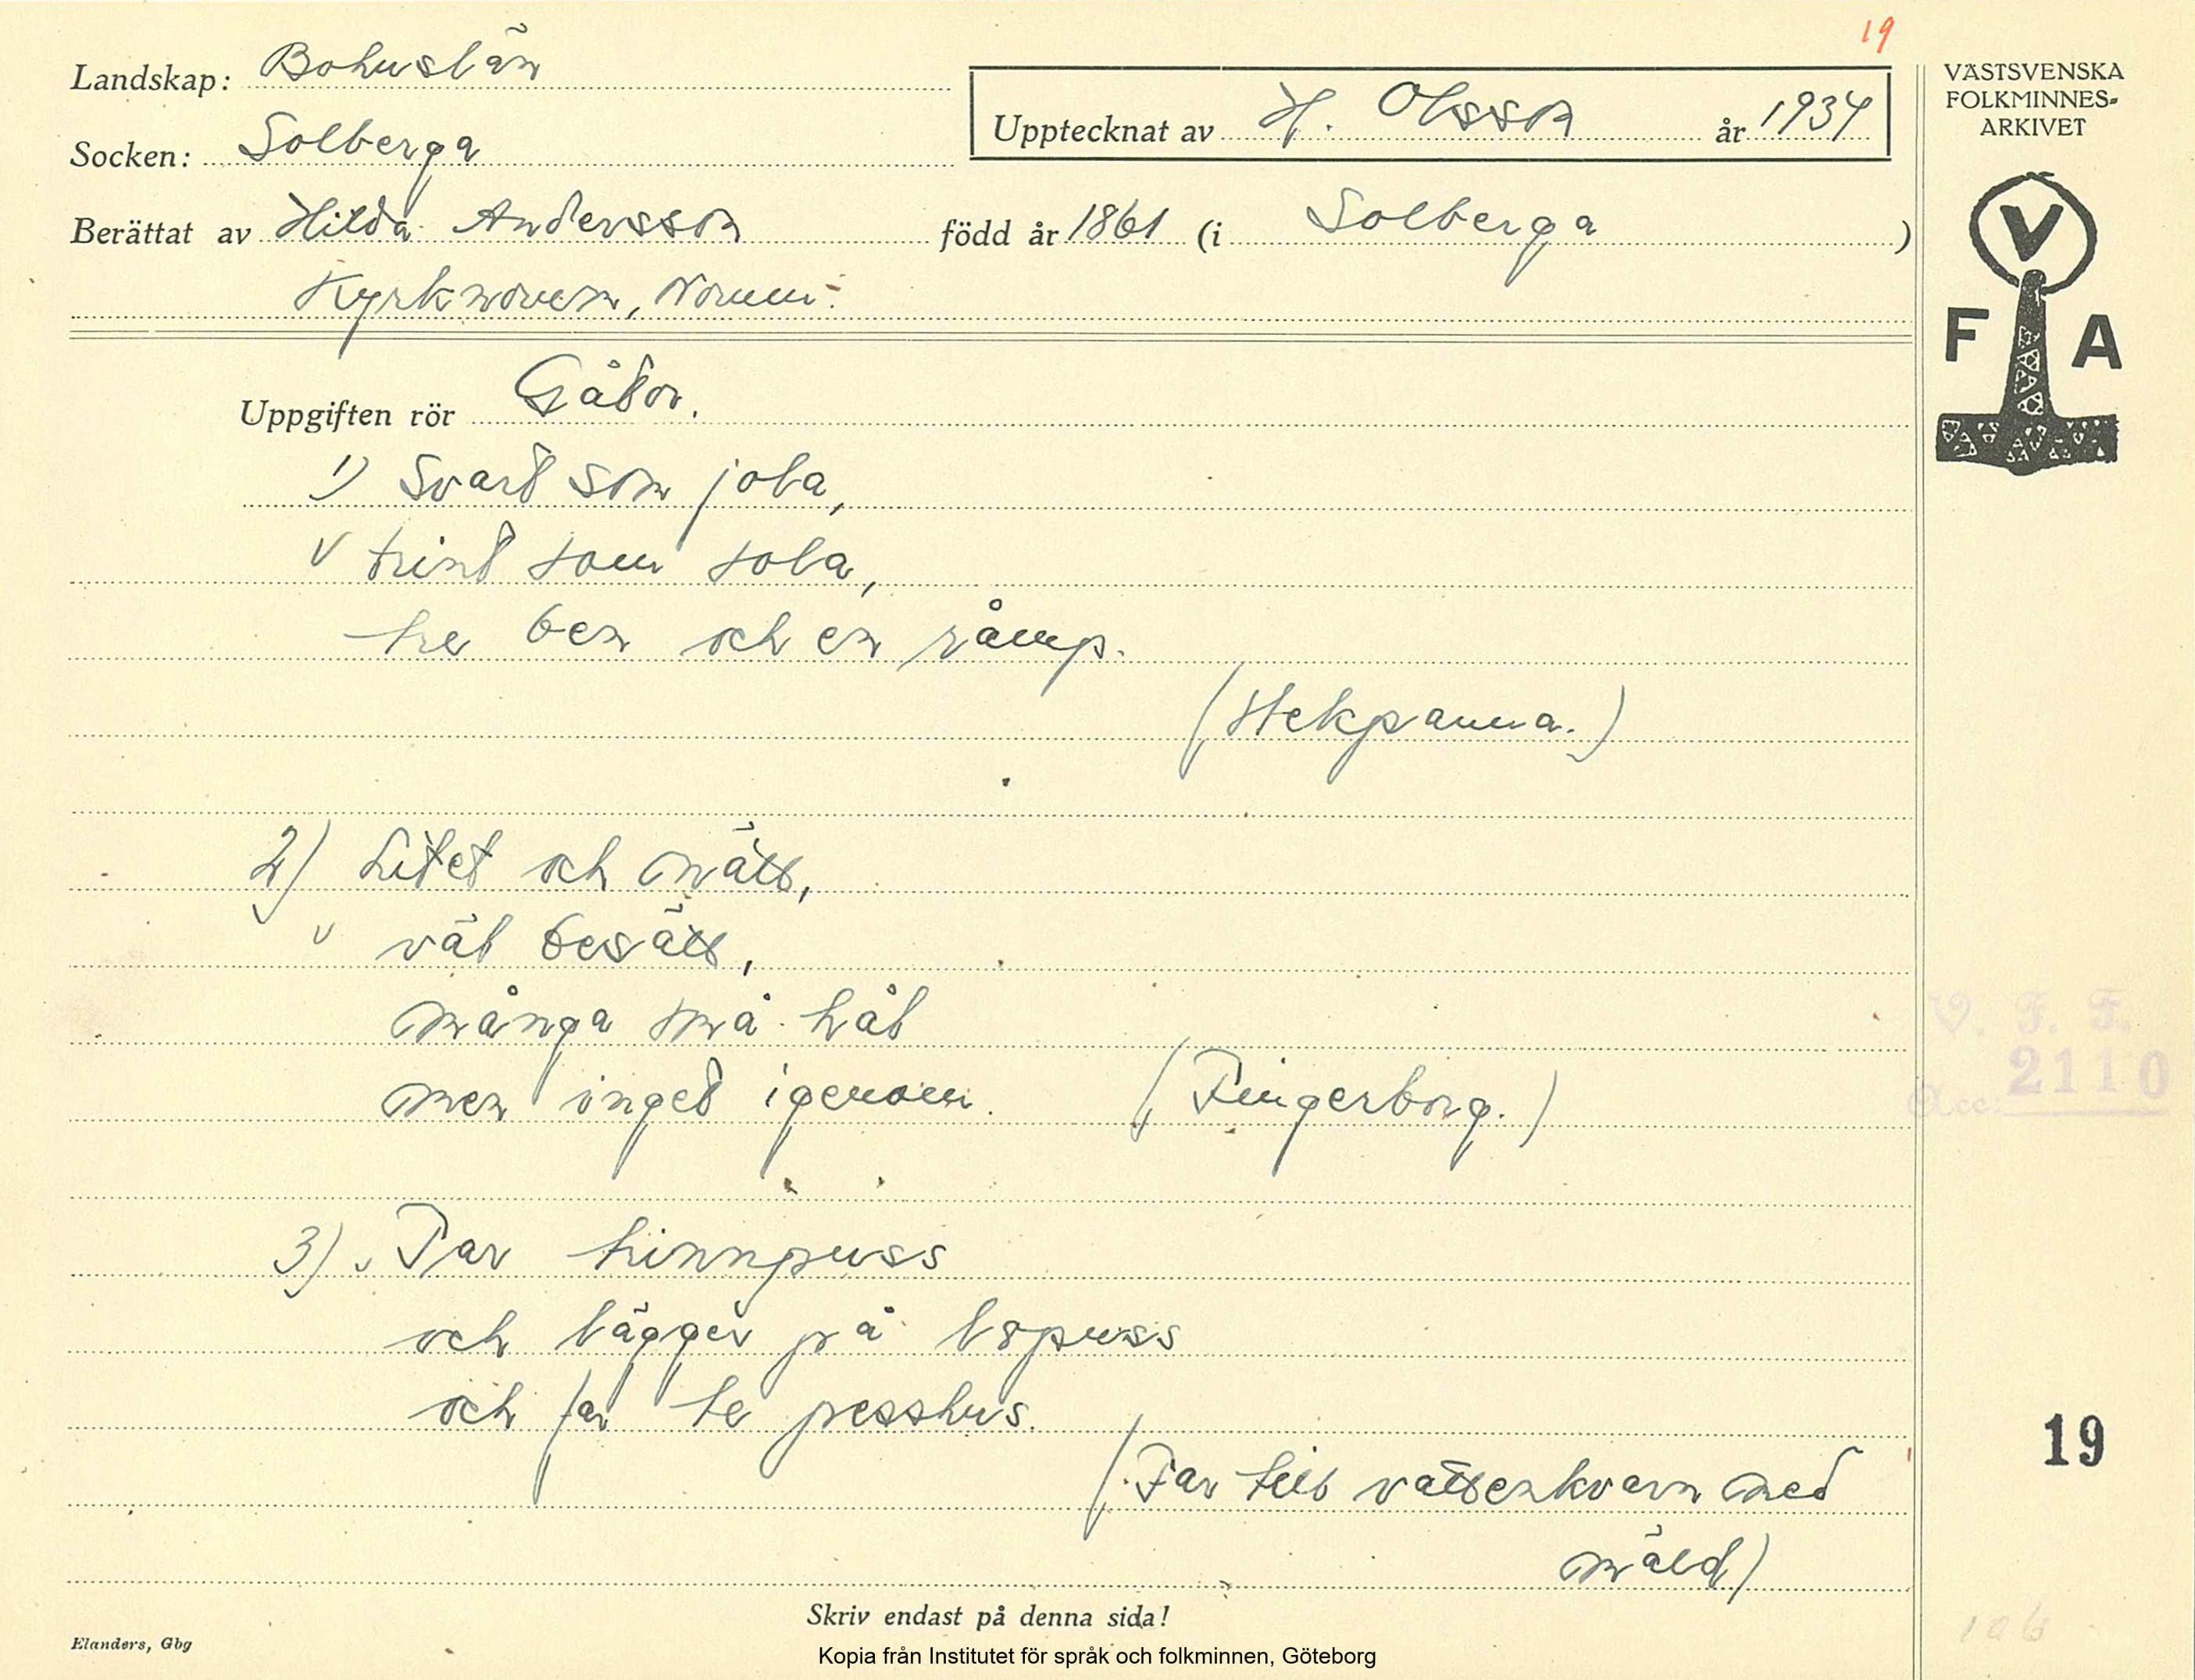 19
Landskap: Bohuslän
Upptecknat av H. Olsson år 1934
Socken: Solberga
Berättat av Hilda Andersson född år 1861 (i Solberga)
VÄSTSVENSKA
FOLKMINNES-
ARKIVET
V
F A
Uppgiften rör Gåtor.
1) Svart som jola,
v trint som sola,
tre ben och en råmp.
(Stekpanna.)
2) Litet och nätt,
v väl besätt,
många små hål
men inget igenom. (Fingerborg.)
V. F. F.
Acc: 2110
3) v Tar trinnpuss
och lägger på lopuss
och far te pesshus.
19
(Far till vattenkvarn med
mäld)
Skriv endast på denna sida!
Elanders, Gbg
Kopia från Institutet för språk och folkminnen, Göteborg